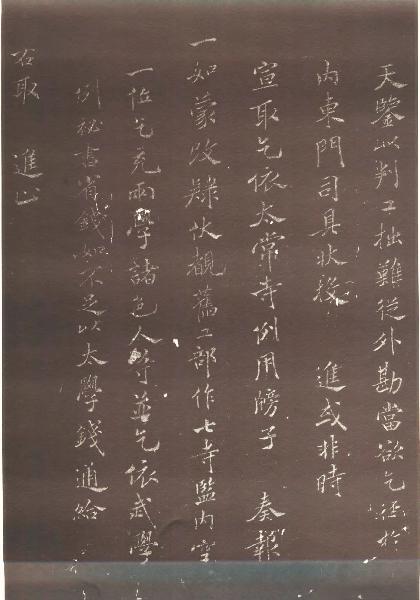 天鑒以判工拙難從外勘當欲乞徑於
內東門司具狀投 進或非時
宣取乞依太常寺例用牓子 奏報
一如蒙改肄伏覩舊工部作七寺監內空
一位乞充兩學諸色人等並乞依武學
例祕書省錢如不足以太學錢通給
右取 進止